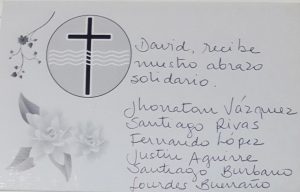 David, recibe
nuestro abrazo
solidario.
Jhonatan Vázquez
Santiago Rivas
Fernando López
Justin Aguirre
Santiago Burbano
Lourdes Buenaño